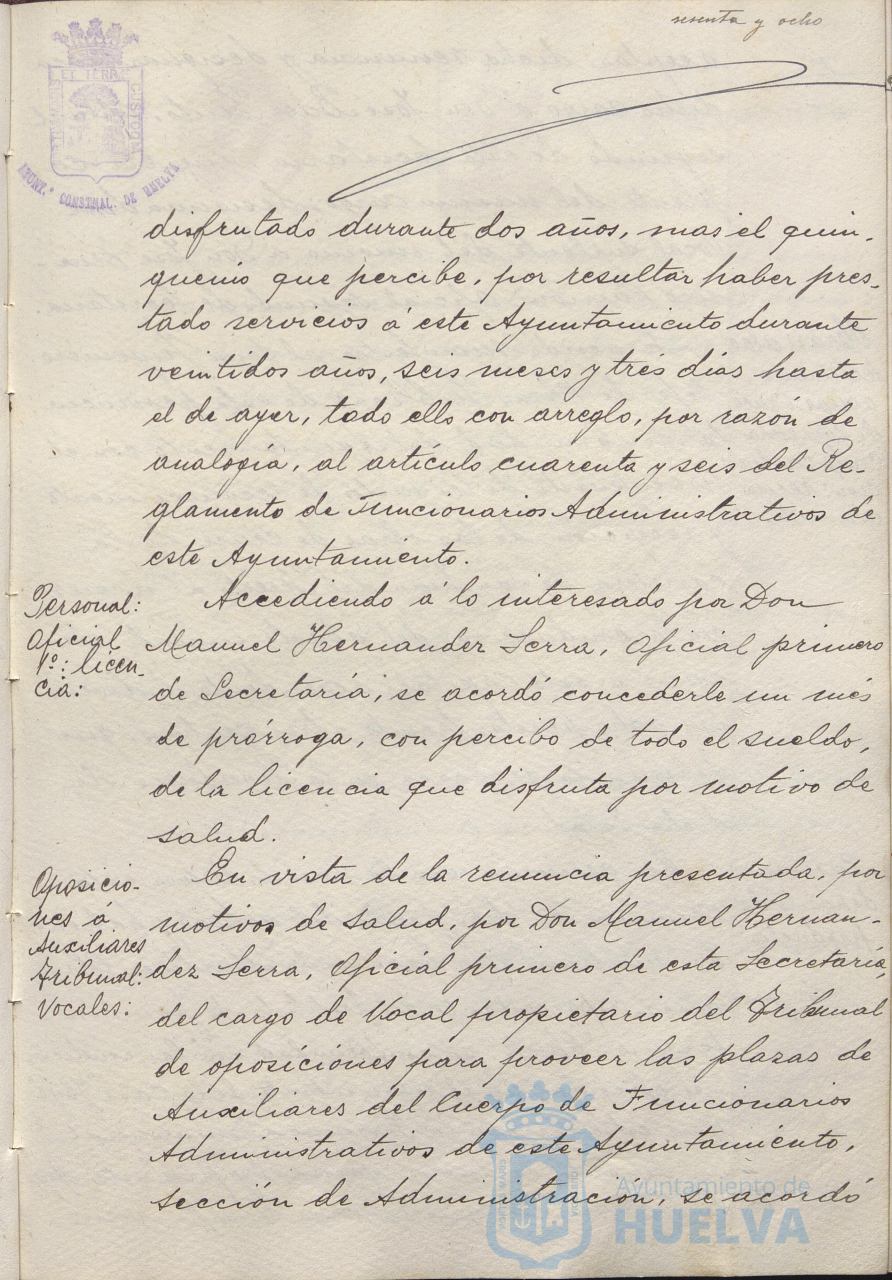 sesenta y ocho
ET TERRÆ CUSTODIA
AYUNT.º CONSTNAL. DE HUELVA
disfrutado durante dos años, mas el quin-
quenio que percibe, por resultar haber pres-
tado servicios á este Ayuntamiento durante
veintidos años, seis meses y trés días hasta
el de ayer, todo ello con arreglo, por razón de
analogía, al artículo cuarenta y seis del Re-
glamento de Funcionarios Administrativos de
este Ayuntamiento.
Personal:
Oficial
1º: licen-
cia:
Accediendo á lo interesado por Don
Manuel Hernandez Serra, Oficial primero
de Secretaría, se acordó concederle un més
de prórroga, con percibo de todo el sueldo,
de la licencia que disfruta por motivo de
salud.
Oposicio-
nes á
Auxiliares
Tribunal:
Vocales:
En vista de la renuncia presentada, por
motivos de salud, por Don Manuel Hernan-
dez Serra, Oficial primero de esta Secretaría,
del cargo de Vocal propietario del Tribunal
de oposiciones para proveer las plazas de
Auxiliares del Cuerpo de Funcionarios
Administrativos de este Ayuntamiento,
sección de Administración, se acordó
Ayuntamiento de
HUELVA